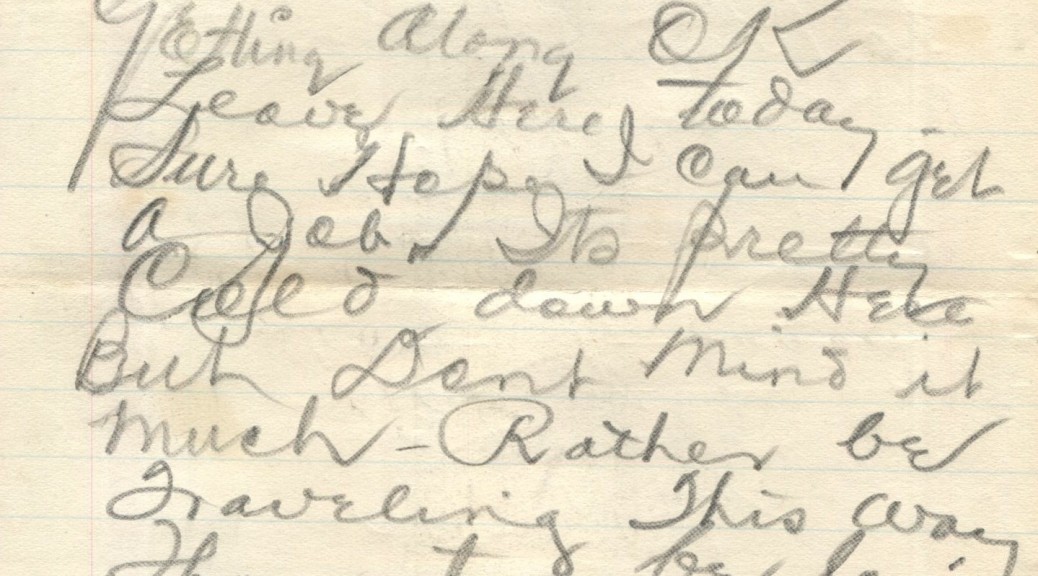 Getting Along OK
Leave Here today
Sure Hope I can get
a Job. Its pretty
Cold down Here
But Dont Mind it
Much - Rather be
Traveling This way
to be